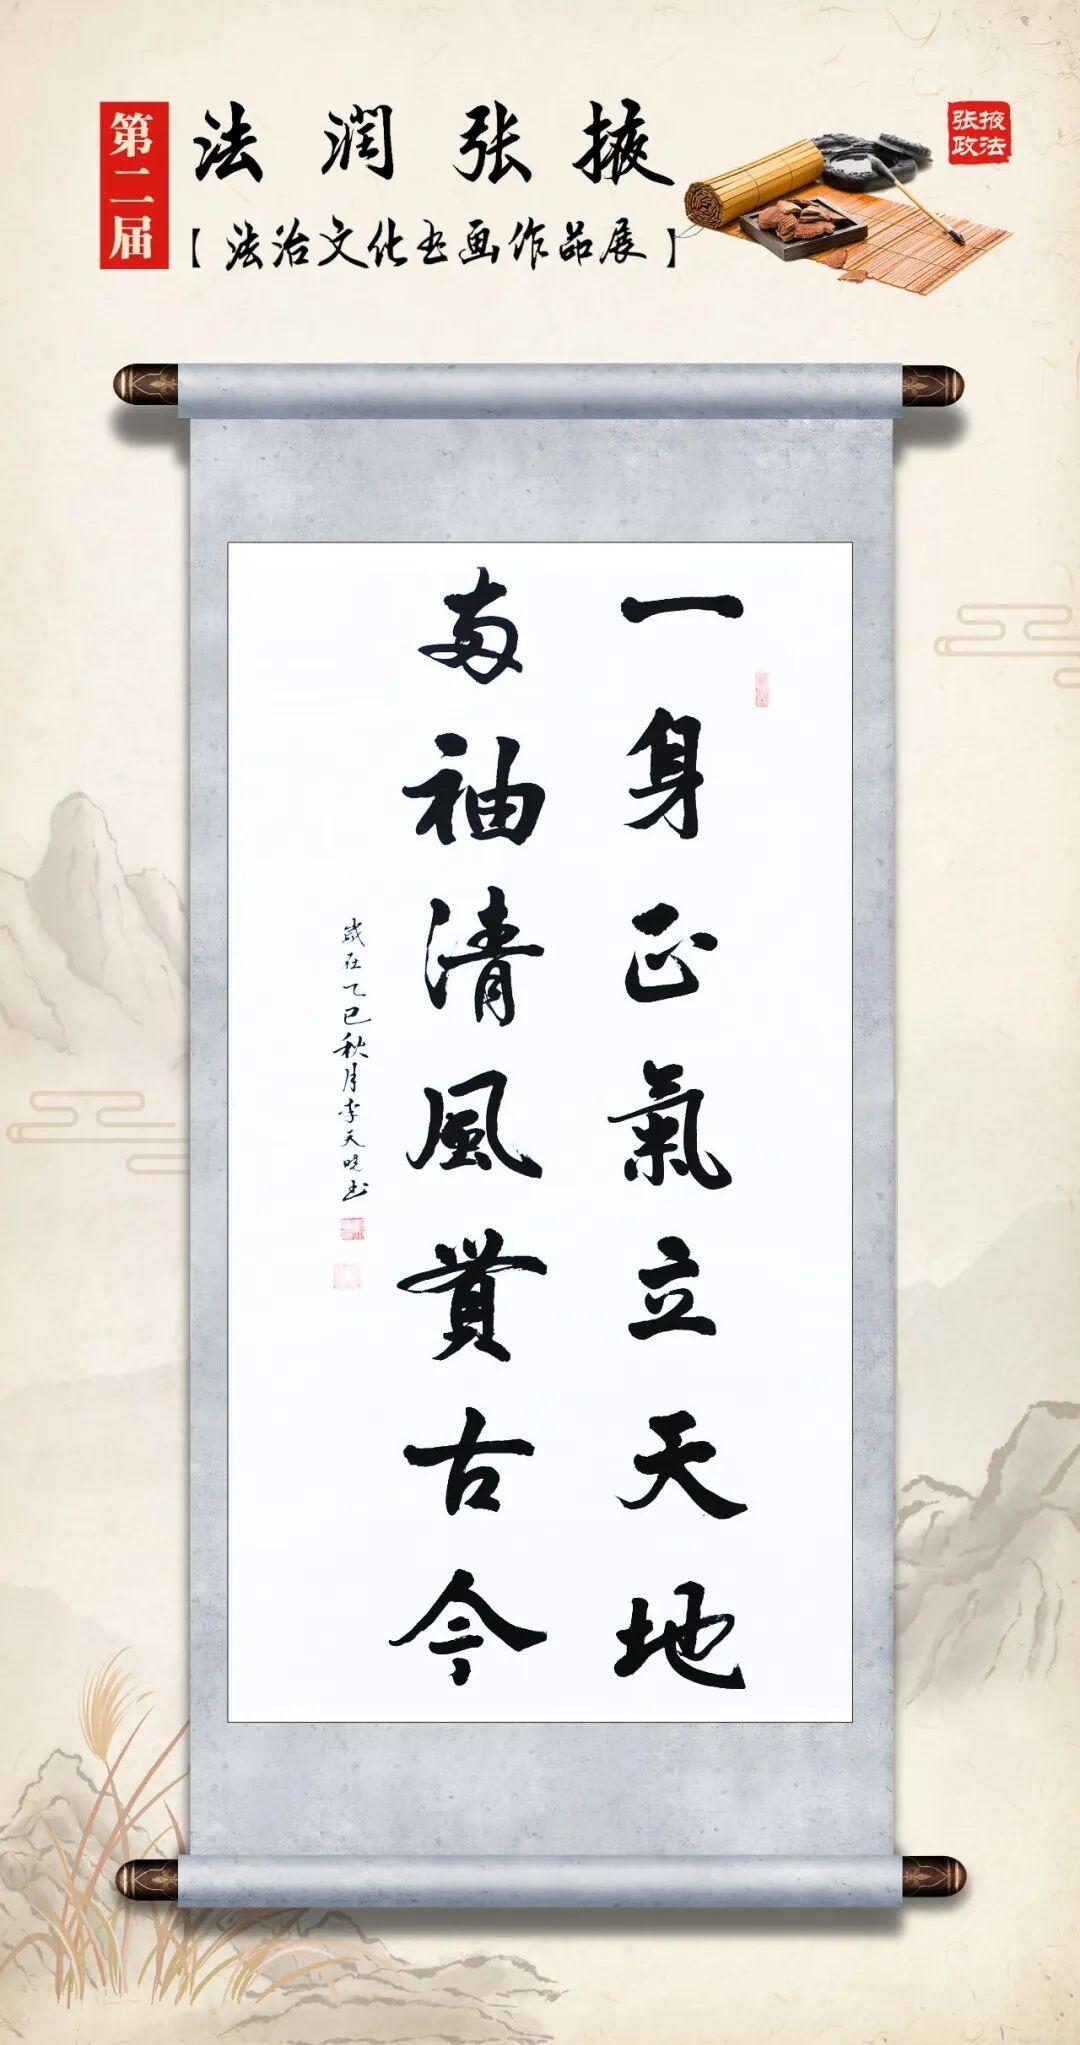 第二届
法润张掖
【法治文化书画作品展】
张掖
政法
一身正氣立天地
两袖清風貫古今
歲在乙巳秋月李天晓书